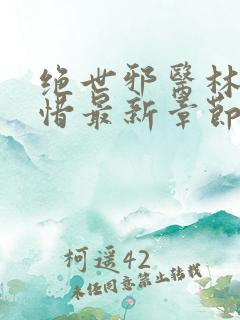 绝世邪医林
惜最新章节
柯遥42
未经同意禁止转载